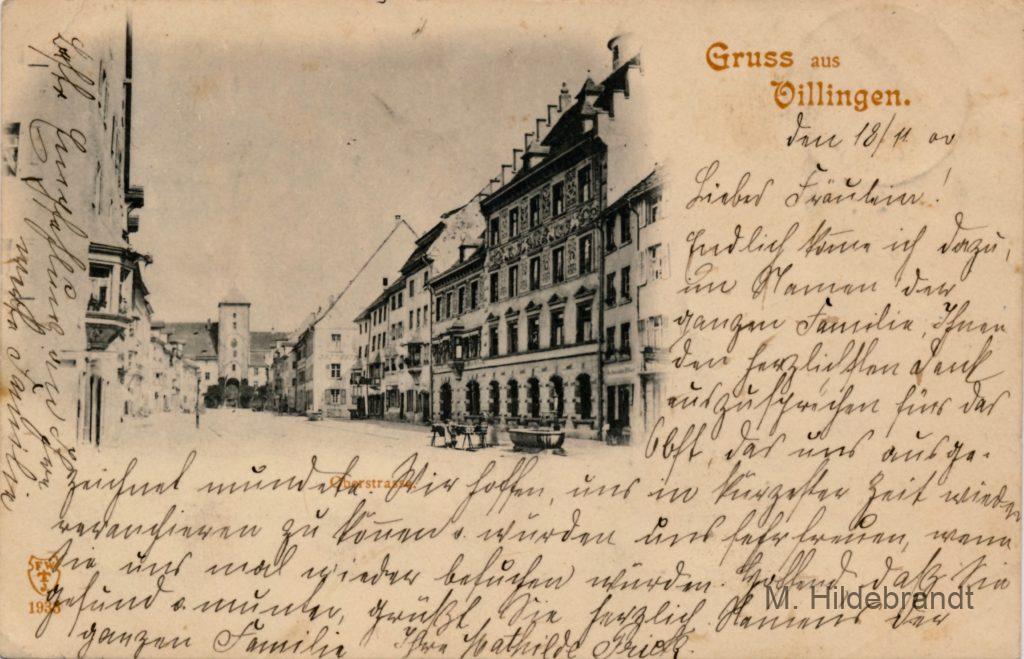 Gruss aus
Villingen.
den 18/11. 00
Liebes Fräulein!
Endlich kome ich dazu,
im Namen der
ganzen Familie, Ihnen
den herzlichsten Dank
auszusprechen fürs das
Obst, das uns ausge-
zeichnet mundete. Wir hoffen, uns in kürzester Zeit wieder
revanchieren zu könen u. würden uns sehr freuen, wenn
Sie uns mal wieder besuchen würden. Hoffend, daß Sie
gesund u. munter, grüßt Sie herzlich Namens der
ganzen Familie Ihre Mathilde Frick.
Oberstrasse.
F W
T
193
M. Hildebrandt
Empfehlung
Familie